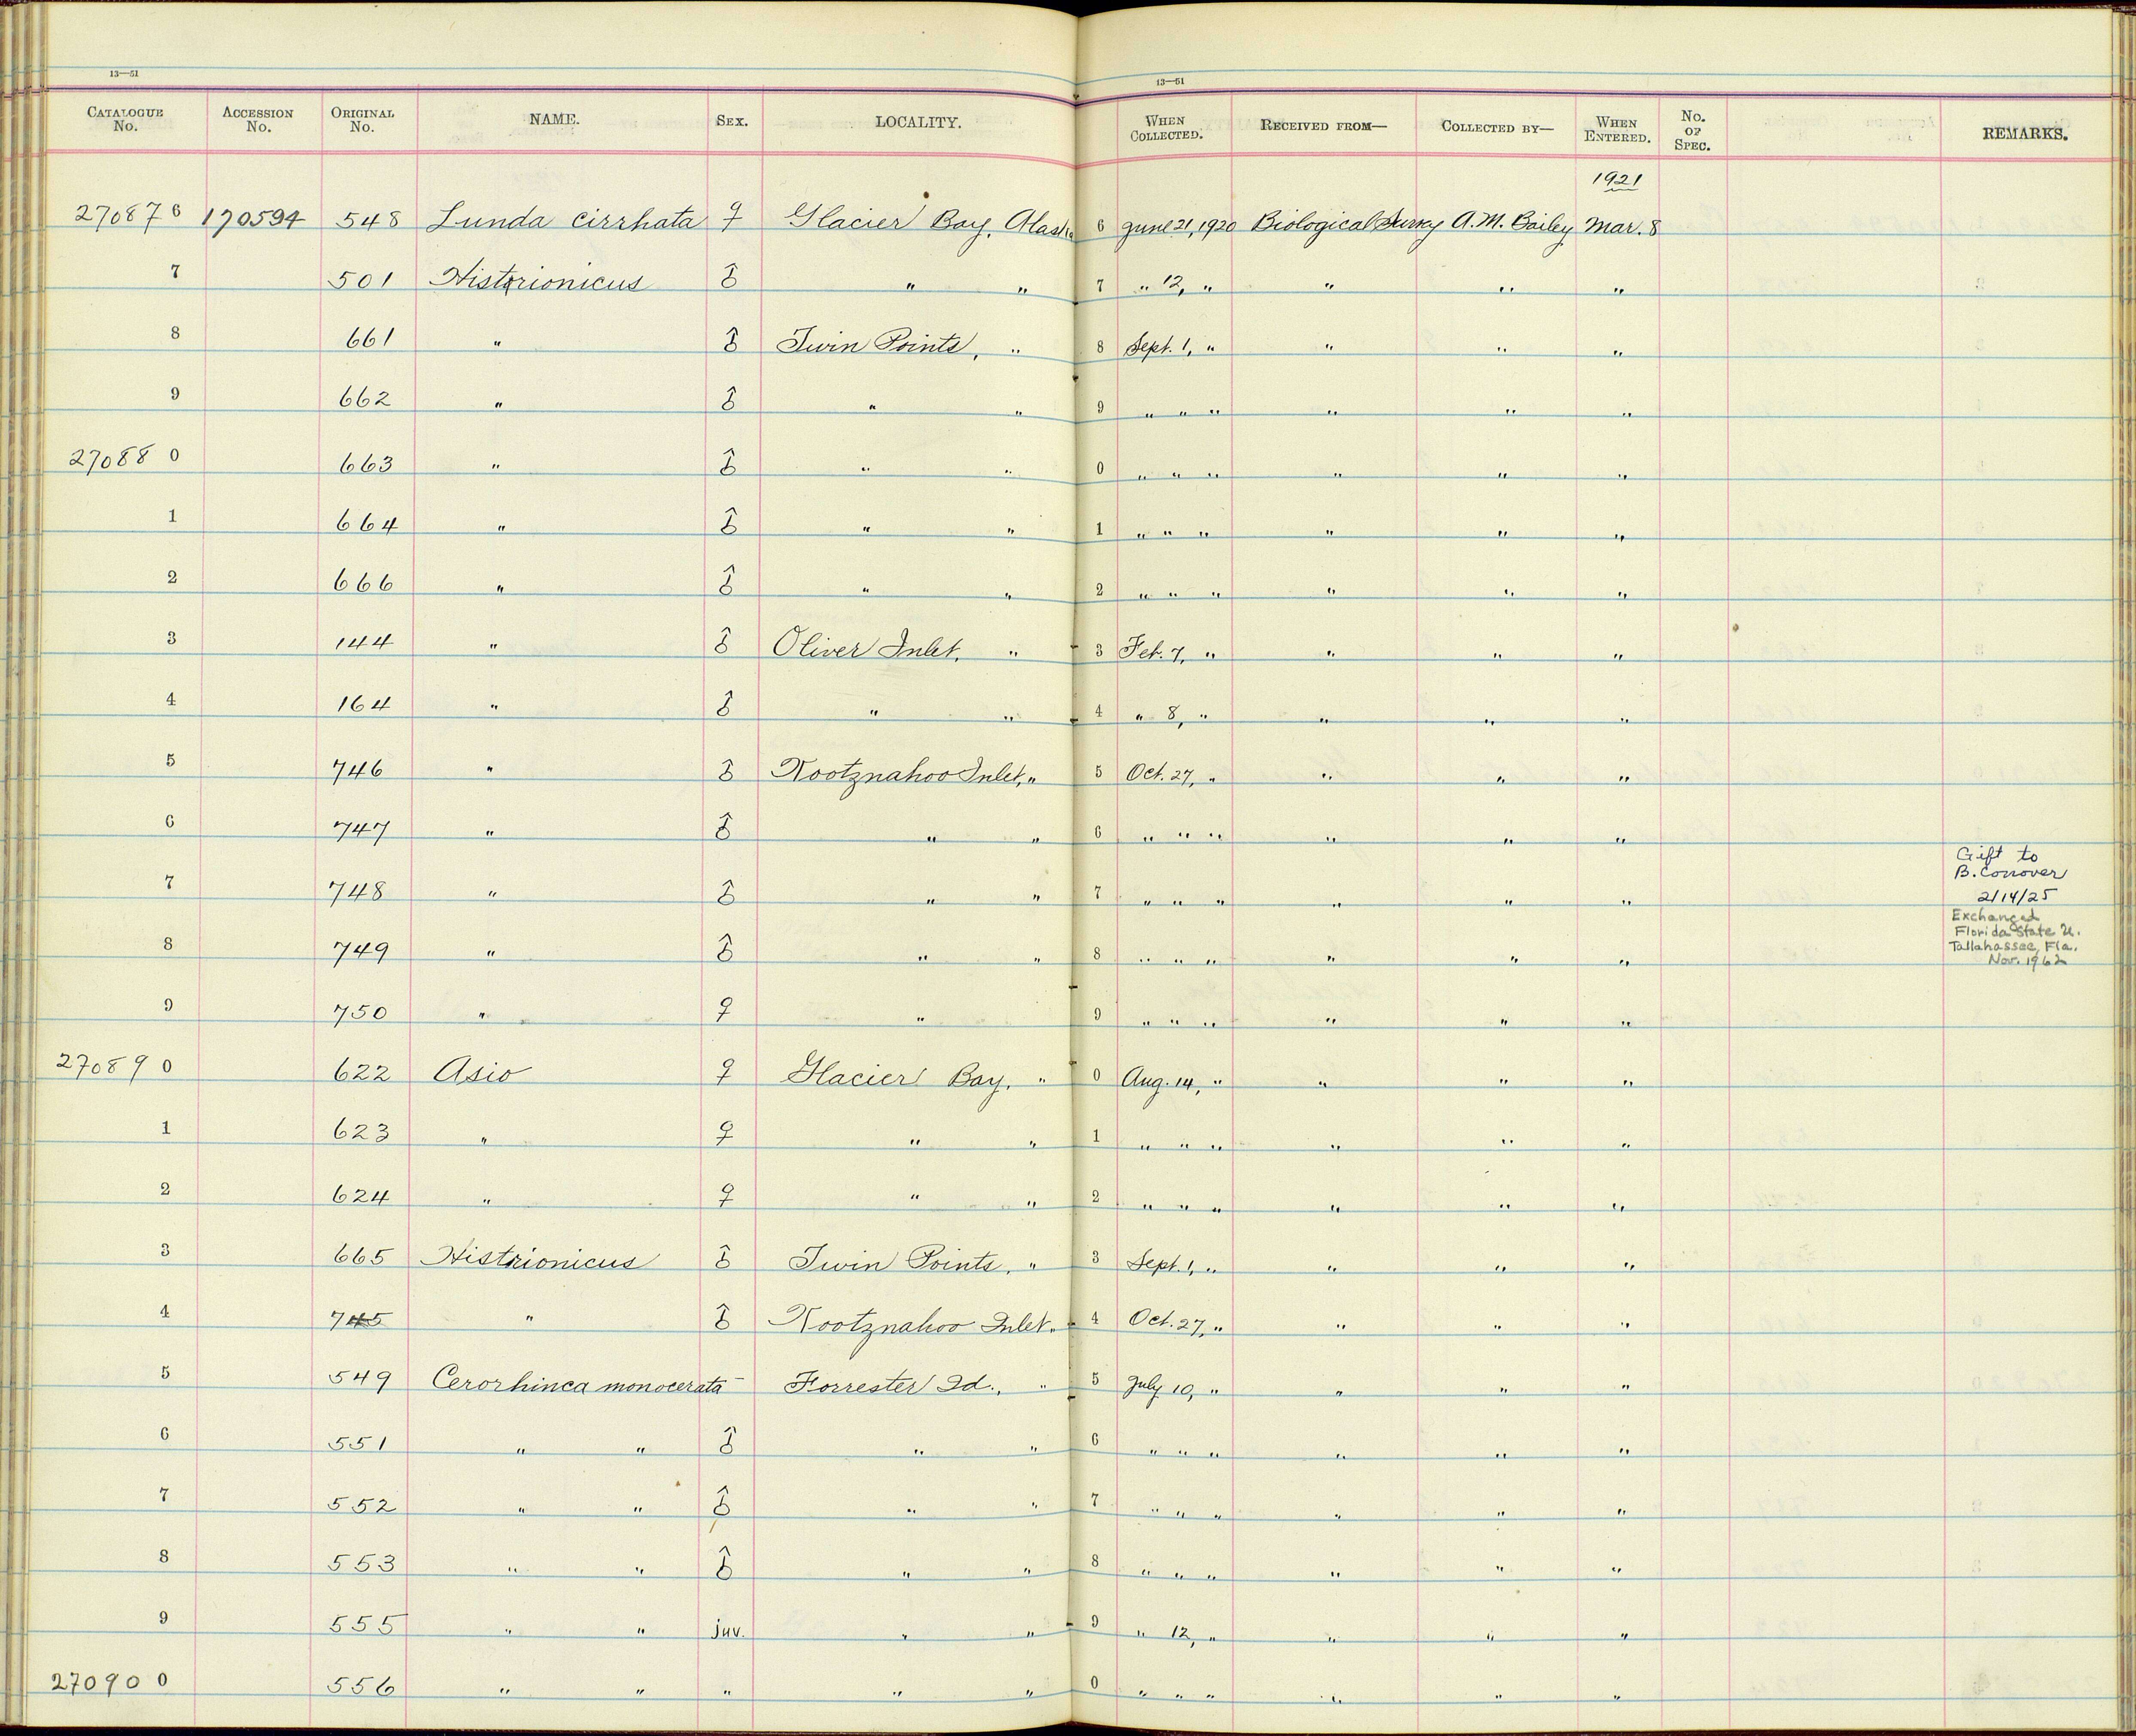 13—51 13—51
CATALOGUE No. ACCESSION No. ORIGINAL No. NAME. SEX. LOCALITY. WHEN COLLECTED. RECEIVED FROM— COLLECTED BY— WHEN ENTERED. No. OF SPEC. REMARKS.
1921
270876 170594 548 Lunda cirrhata ♀ Glacier Bay, Alaska 6 June 21, 1920 Biological Survey A.M. Bailey Mar. 8
7 501 Histrionicus ♂ " " 7 " 12, " " " "
8 661 " ♂ Twin Points, " 8 Sept. 1, " " " "
9 662 " ♂ " " 9 " " " " " "
270880 663 " ♂ " " 0 " " " " " "
1 664 " ♂ " " 1 " " " " " "
2 666 " ♂ " " 2 " " " " " "
3 144 " ♂ Oliver Inlet, " 3 Feb. 7, " " " "
4 164 " ♂ " " 4 " 8, " " " "
5 746 " ♂ Kootznahoo Inlet, " 5 Oct. 27, " " " "
6 747 " ♂ " " 6 " " " " " "
7 748 " ♂ " " 7 " " " " " " Gift to
B. Conover
2/14/25
8 749 " ♂ " " 8 " " " " " " Exchanged
Florida State U.
Tallahassee, Fla.
Nov. 1962
9 750 " ♀ " 9 " " " " " "
270890 622 Asio ♀ Glacier Bay, " 0 Aug. 14, " " " "
1 623 " ♀ " " 1 " " " " " "
2 624 " ♀ " " 2 " " " " " "
3 665 Histrionicus ♂ Twin Points, " 3 Sept. 1, " " " "
4 745 " ♂ Kootznahoo Inlet, " 4 Oct. 27, " " " "
5 549 Cerorhinca monocerata – Forrester Id., " 5 July 10, " " " "
6 551 " " ♂ " " 6 " " " " " "
7 552 " " ♂ " " 7 " " " " " "
8 553 " " ♂ " " 8 " " " " " "
9 555 " " juv. " " 9 " 12, " " " "
270900 556 " " " " " 0 " " " " " "